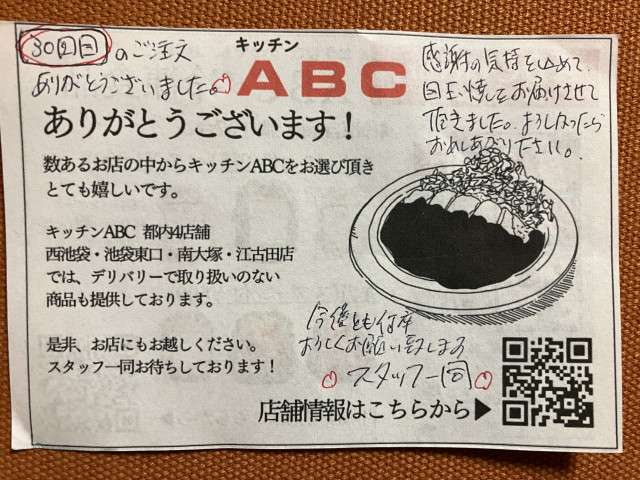 30回目のご注文
ありがとうございました。
キッチン
ABC
感謝の気持を込めて、
目玉焼をお届けさせて
頂きました。よろしかったら
お召しあがり下さい。
ありがとうございます!
数あるお店の中からキッチンABCをお選び頂き
とても嬉しいです。
キッチンABC 都内4店舗
西池袋・池袋東口・南大塚・江古田店
では、デリバリーで取り扱いのない
商品も提供しております。
是非、お店にもお越しください。
スタッフ一同お待ちしております!
今後とも何卒
よろしくお願い致します
スタッフ一同
店舗情報はこちらから▶